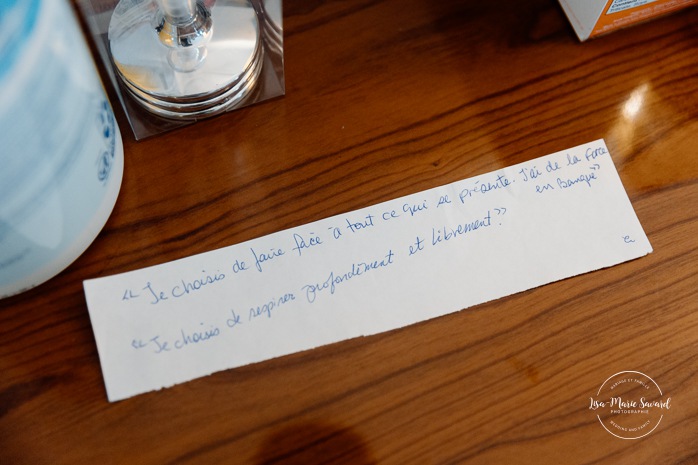 « Je choisis de faire face à tout ce qui se présente. J'ai de la force
en Banque »
« Je choisis de respirer profondément et librement. »
MARIAGE ET FAMILLE
LISA-MARIE SAVARD
PHOTOGRAPHIE
WEDDING AND FAMILY